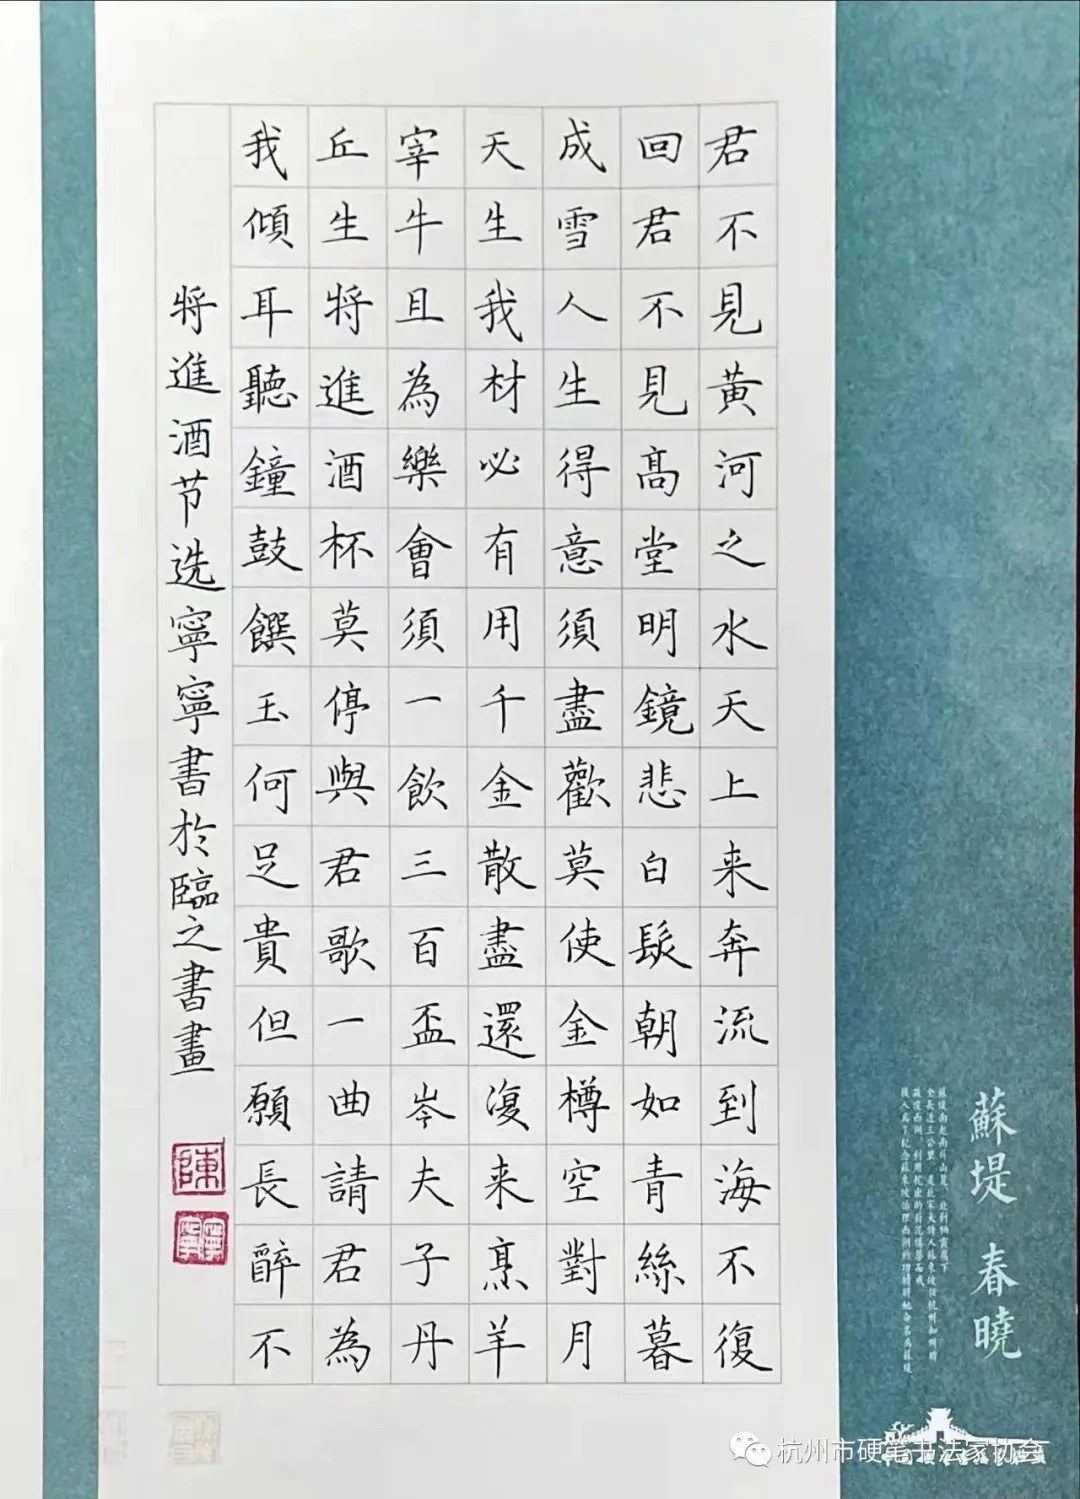 君不見黃河之水天上来奔流到海不復
回君不見髙堂明鏡悲白髮朝如青絲暮
成雪人生得意須盡歡莫使金樽空對月
天生我材必有用千金散盡還復来烹羊
宰牛且為樂會須一飲三百盃岑夫子丹
丘生將進酒杯莫停與君歌一曲請君為
我傾耳聽鐘鼓饌玉何足貴但願長醉不
將進酒节选寧寧書於臨之書畫
陳
寧寧
蘇堤 春曉
杭州市硬笔书法家协会